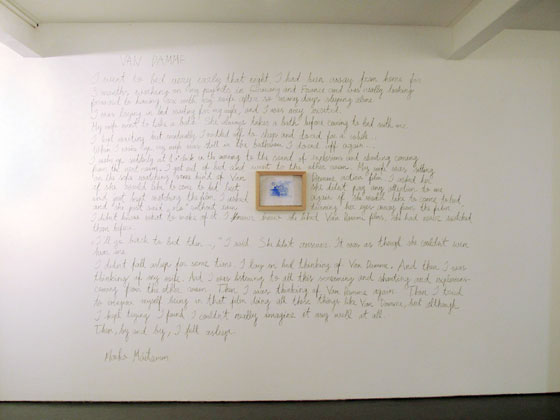 VAN DAMME
I went to bed very early that night. I had been away from home for
3 months working on my projects in Germany and France and was really looking
forward to having sex with my wife after so many days sleeping alone.
I was laying in bed waiting for my wife, and I was very excited.
My wife went to take a bath. She always takes a bath before coming to bed with me.
I lay waiting but eventually I nodded off to sleep and dozed for a while.
When I woke up my wife was still in the bathroom. I dozed off again...
I woke up suddenly at 1 o'clock in the morning to the sound of explosions and shouting coming
from the next room. I got out of bed and went to the other room. My wife was sitting
on the sofa watching some kind of Van Damme action film. I asked her
if she would like to come to bed, but she didn't pay any attention to me
and just kept watching the film. I asked again if she would like to come to bed,
and she just said, "No" without even turning her eyes away from the film.
I didn't know what to make of it. I never knew she liked Van Damme films, she had never watched
them before.
"I'll go back to bed then...," I said. She didn't answer. It was as though she couldn't even
hear me.
I didn't fall asleep for some time. I lay in bed thinking of Van Damme. And then I was
thinking of my wife. And I was listening to all this screaming and shouting and explosions
coming from the other room. Then I was thinking of Van Damme again. Then I tried
to imagine myself being in that film doing all those things like Van Damme, but although
I kept trying I found I couldn't really imagine it very well at all.
Then, by and by, I fell asleep.